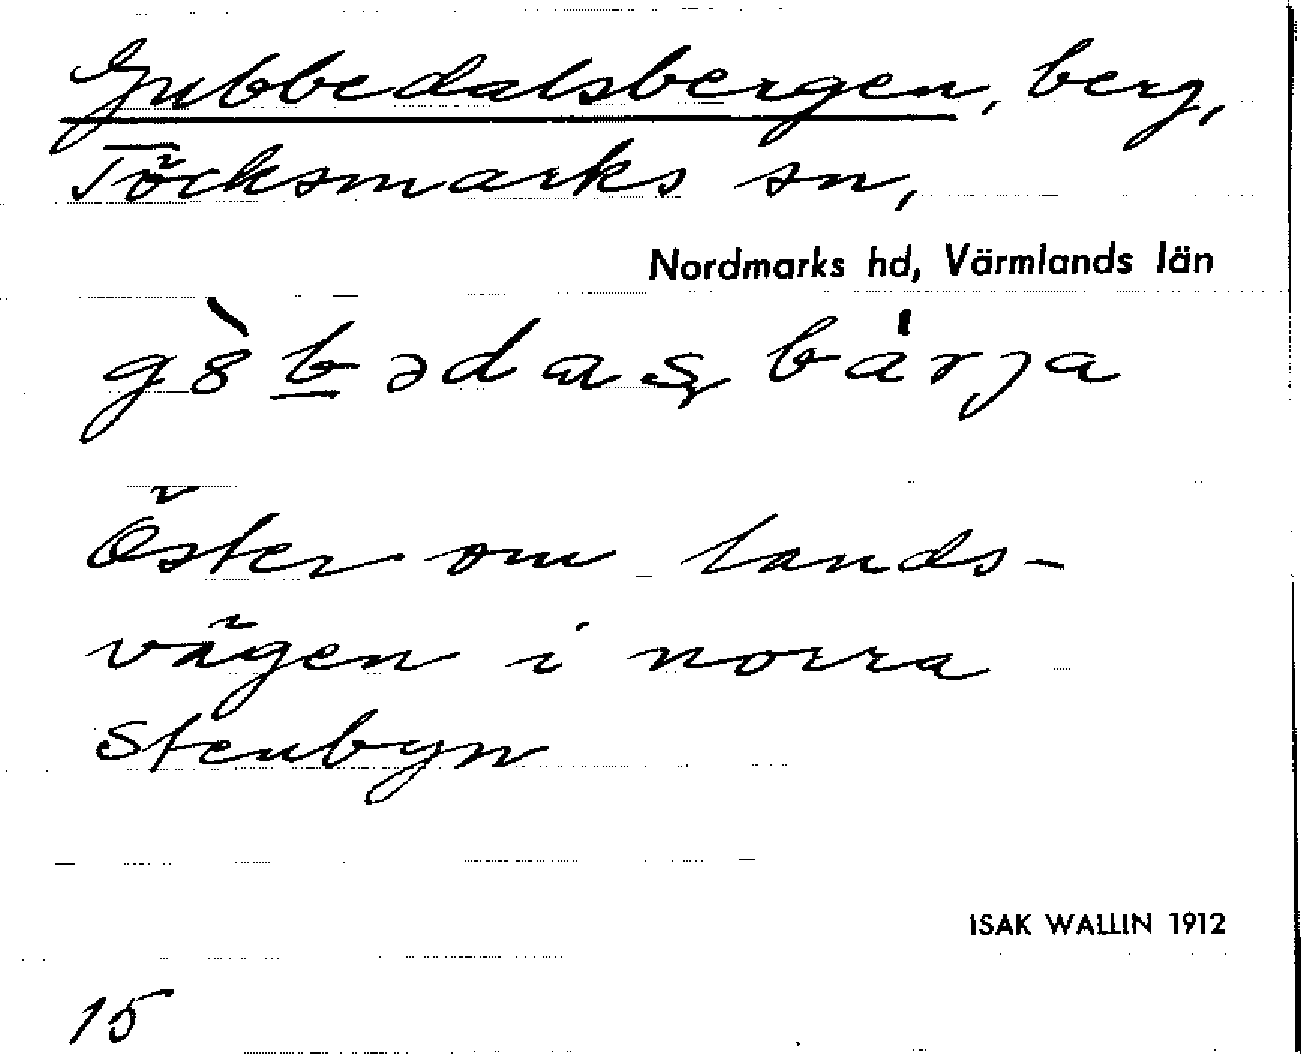 Gubbedalsbergen, berg,
Töcksmarks sn,
Nordmarks hd, Värmlands län
Öster om lands-
vägen i norra
Stenbyn
ISAK WALLIN 1912
15